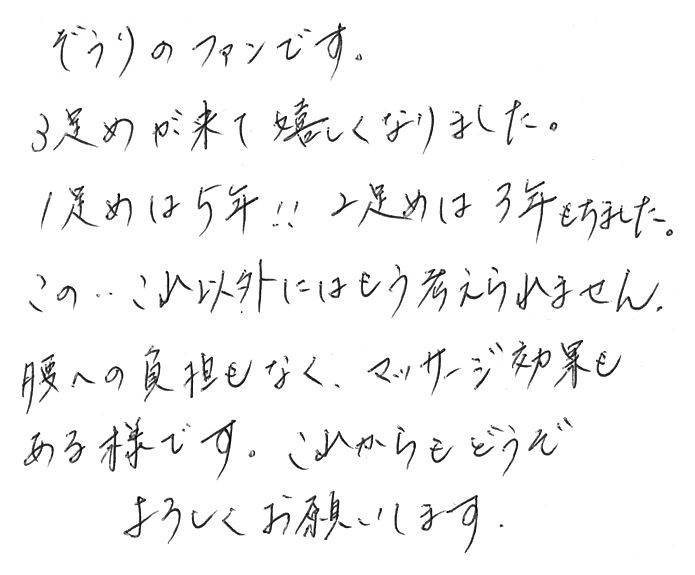 ぞうりのファンです。
3足めが来て嬉しくなりました。
1足めは5年!! 2足めは3年もちました。
この‥これ以外にはもう考えられません.
腰への負担もなく、マッサージ効果も
ある様です。これからもどうぞ
よろしくお願いします.